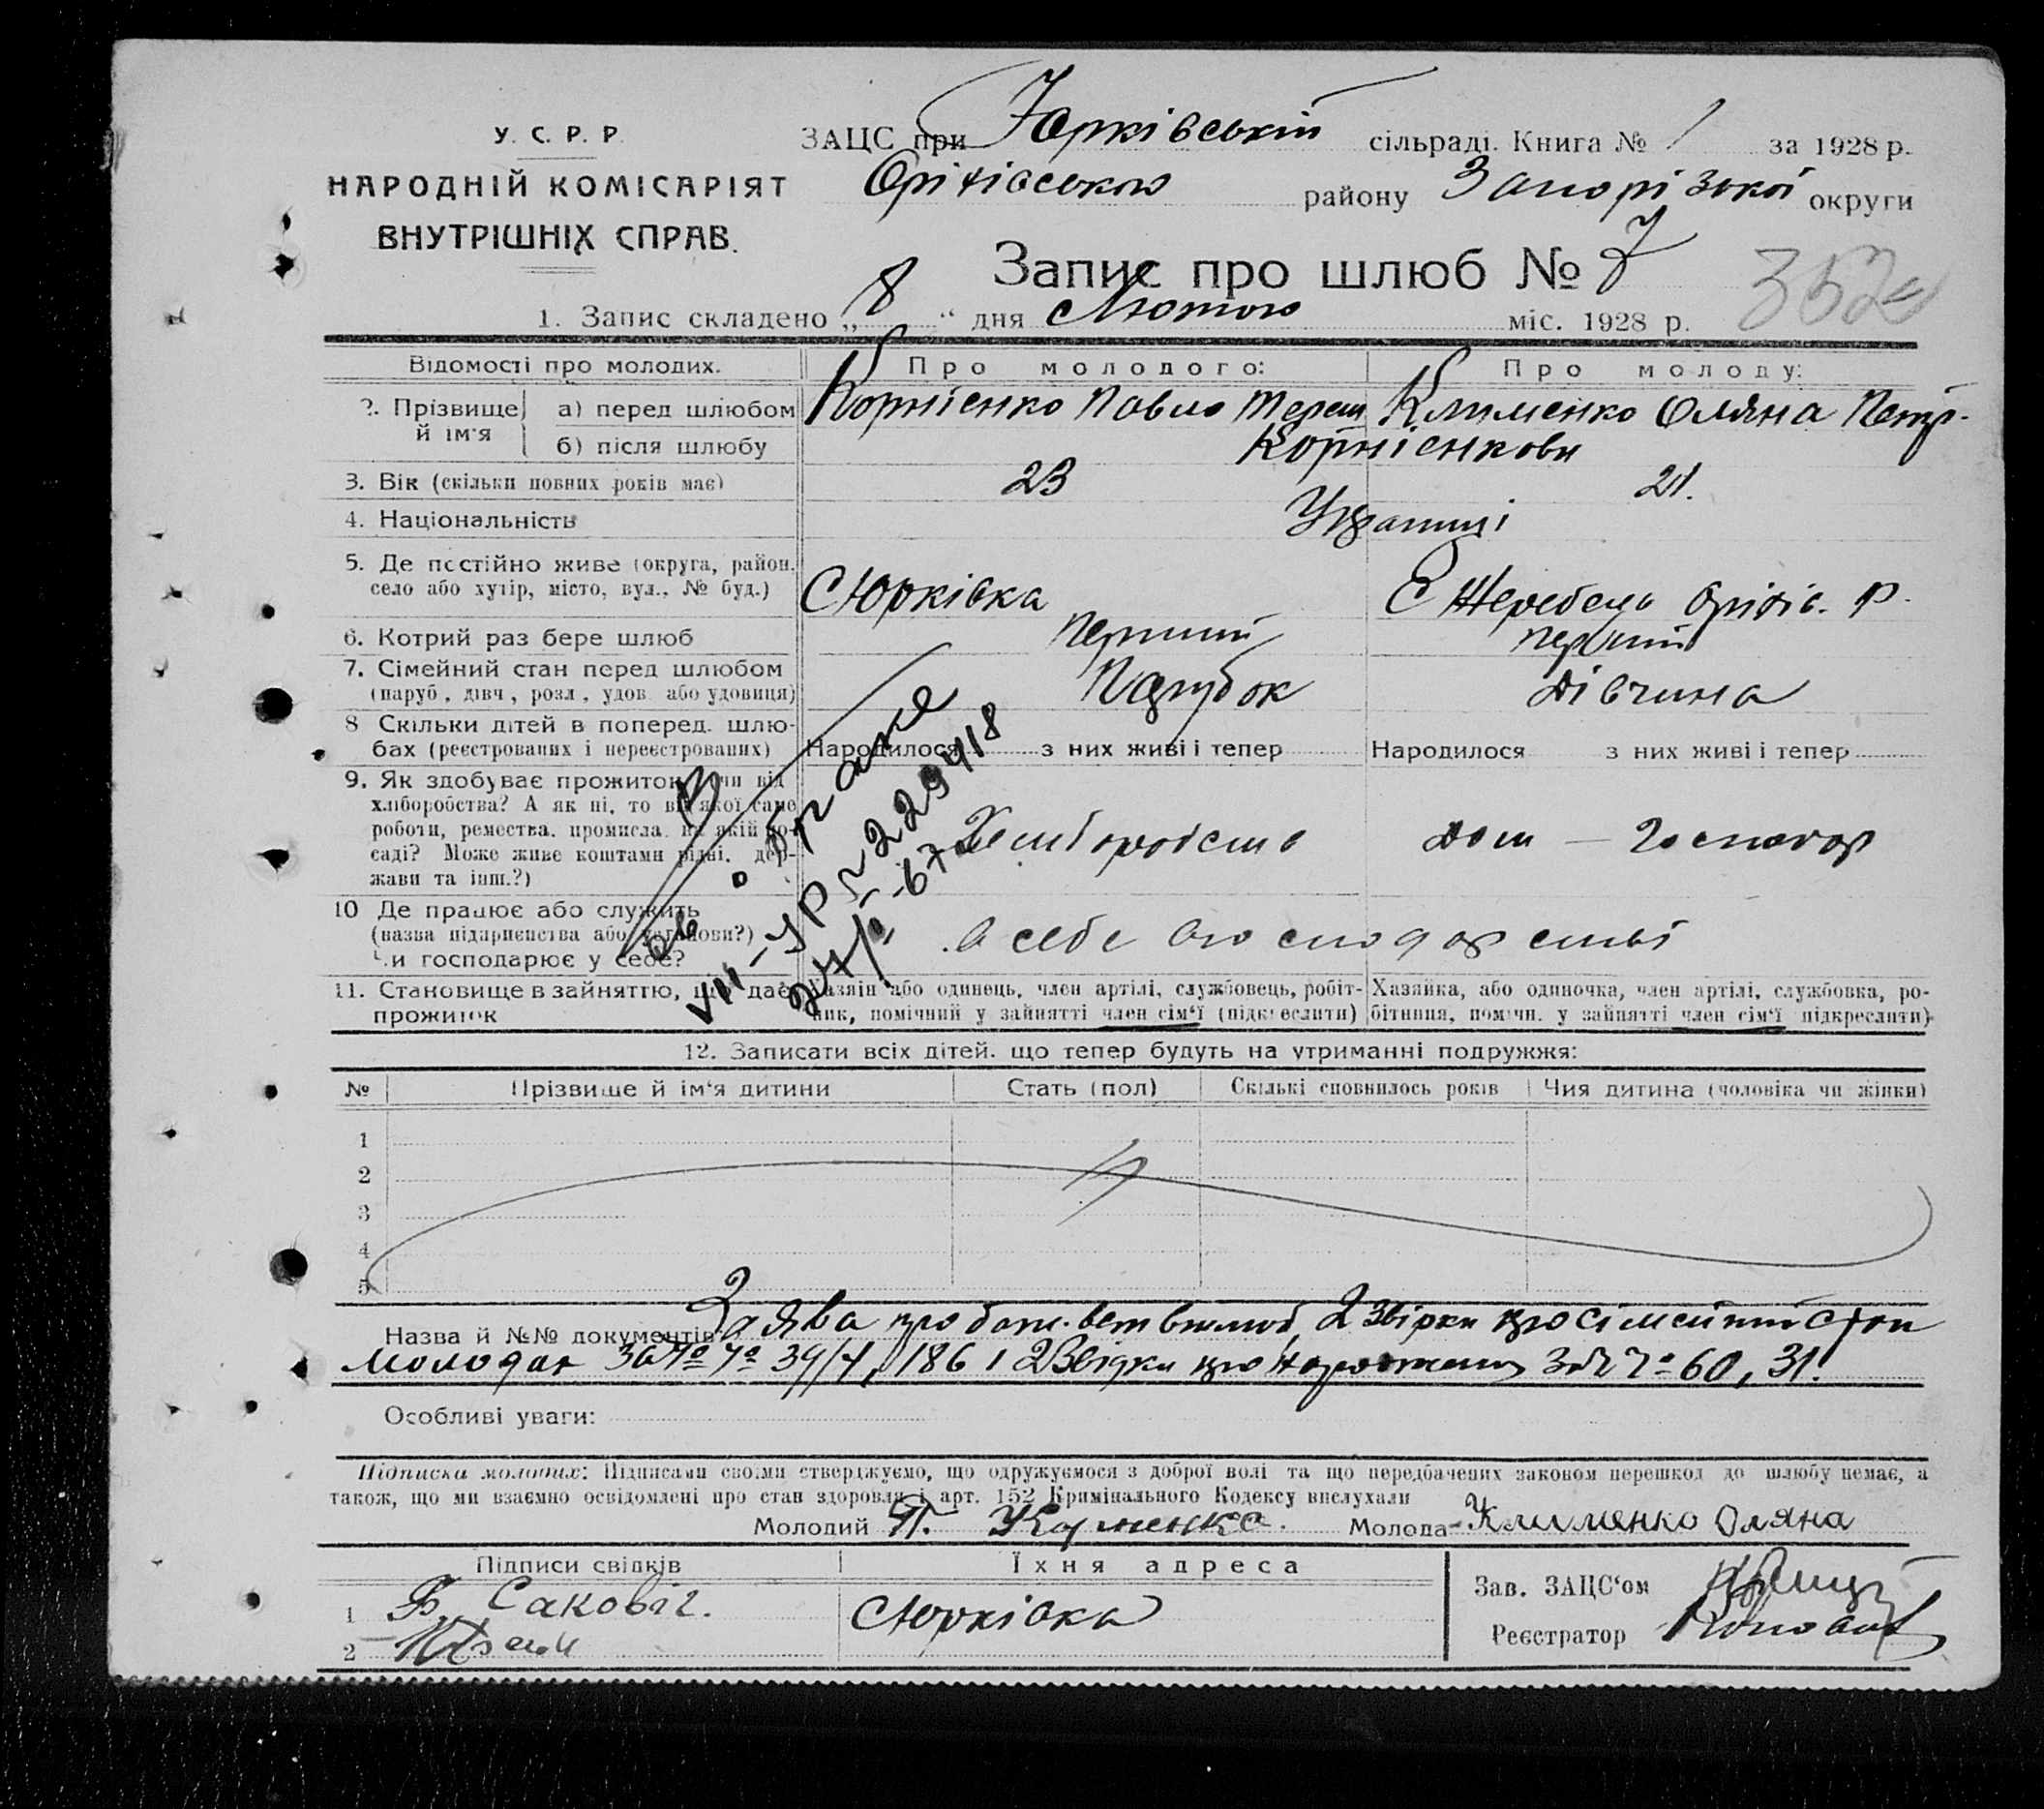 У. С. Р. Р.
НАРОДНІЙ КОМІСАРІЯТ
ВНУТРІШНІХ СПРАВ.
ЗАЦС при Юрківській сільраді. Книга № 1 за 1928 р.
Оріхівського району Запорізької округи
Запис про шлюб № 7
352
1. Запис складено „ 8 “ дня Лютого міс. 1928 р.
Відомості про молодих. Про молодого: Про молоду:
2. Прізвище й ім'я а) перед шлюбом Корнієнко Павло Терен Клименко Оляна Петр.
б) після шлюбу Корнієнкови
3. Вік (скільки повних років має) 23 21.
4. Національність Українці
5. Де постійно живе (округа, район, село або хутір, місто, вул., № буд.) С Юрківка С Жеребець Оріхів. р.
6. Котрий раз бере шлюб Перший перший
7. Сімейний стан перед шлюбом (паруб., дівч., розл., удов. або удовиця) Парубок дівчина
8 Скільки дітей в поперед. шлюбах (реєстрованих і нереєстрованих) Народилося з них живі і тепер Народилося з них живі і тепер
9. Як здобуває прожиток, чи від
хліборобства? А як ні, то від якої саме
роботи, ремества, промисла, на якій по-
саді? Може живе коштами рідні, дер-
жави та інш.?)
Хліборобство дом — господар
10 Де працює або служить
(назва підприємства або установи?)
Чи господарює у себе?
в себе в господарстві
11. Становище в зайняттю, що дає прожиток
Хазяїн або одинець, член артілі, службовець, робіт-
ник, помічний у зайнятті член сім'ї (підкреслити)
Хазяйка, або одиночка, член артілі, службовка, ро-
бітниця, помічн. у зайнятті член сім'ї підкреслити)
о браке
VII-УР № 229418
24/II-67
12. Записати всіх дітей, що тепер будуть на утриманні подружжя:
№ Прізвище й ім'я дитини Стать (пол) Скількі сповнилось років Чия дитина (чоловіка чи жінки)
1
2
3
4
5
Назва й №№ документів Заява про 2 Звірки про сімейний стан
молодих за 39/4, 186 і 2 Звідки про народження 60, 31.
Особливі уваги:
Підписка молодих: Підписами своїми стверджуємо, що одружуємося з доброї волі та що передбачених законом перешкод до шлюбу немає, а
також, що ми взаємно освідомлені про стан здоровля і арт. 152 Кримінального Кодексу вислухали
Молодий П. Молода Клименко Оляна
Підписи свідків Їхня адреса
1 Сакович. С Юрківка
2
Зав. ЗАЦС'ом
Реєстратор